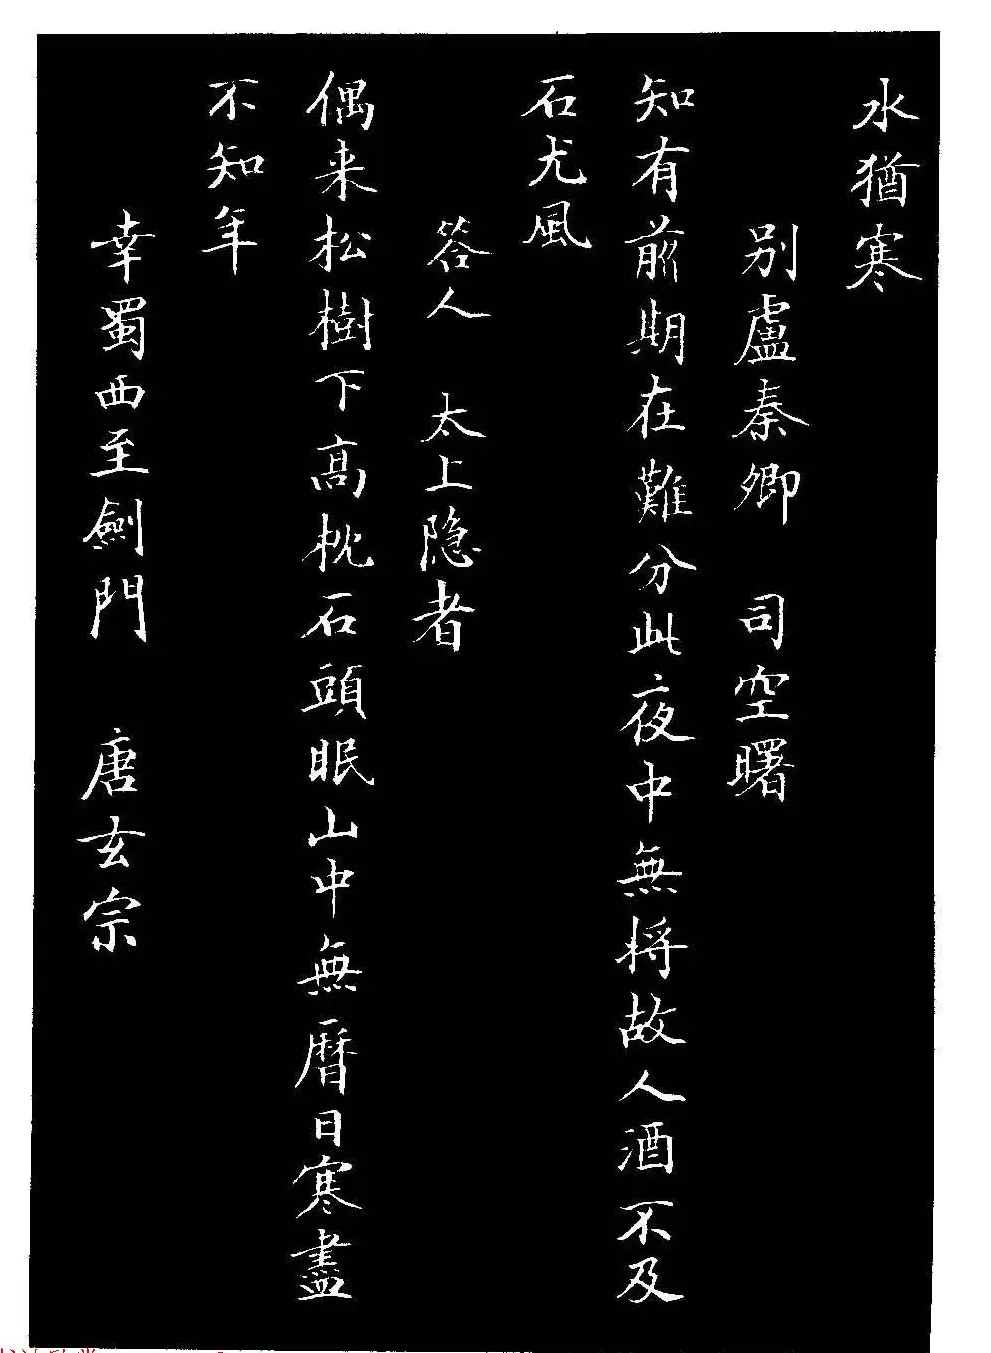 水猶寒
别盧秦卿 司空曙
知有前期在難分此夜中無將故人酒不及
石尤風
答人 太上隐者
偶来松樹下高枕石頭眠山中無曆日寒盡
不知年
幸蜀西至劍門 唐玄宗